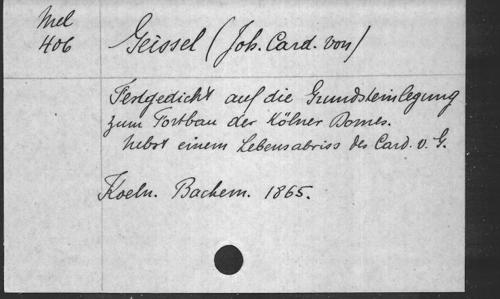 Mel
406
Geissel (Joh. Card. von)
Festgedicht auf die Grundsteinlegung
zum Fortbau der Kölner Domes.
nebst einem Lebensabriss des Card. v. G.
Koeln. Bachem. 1865.